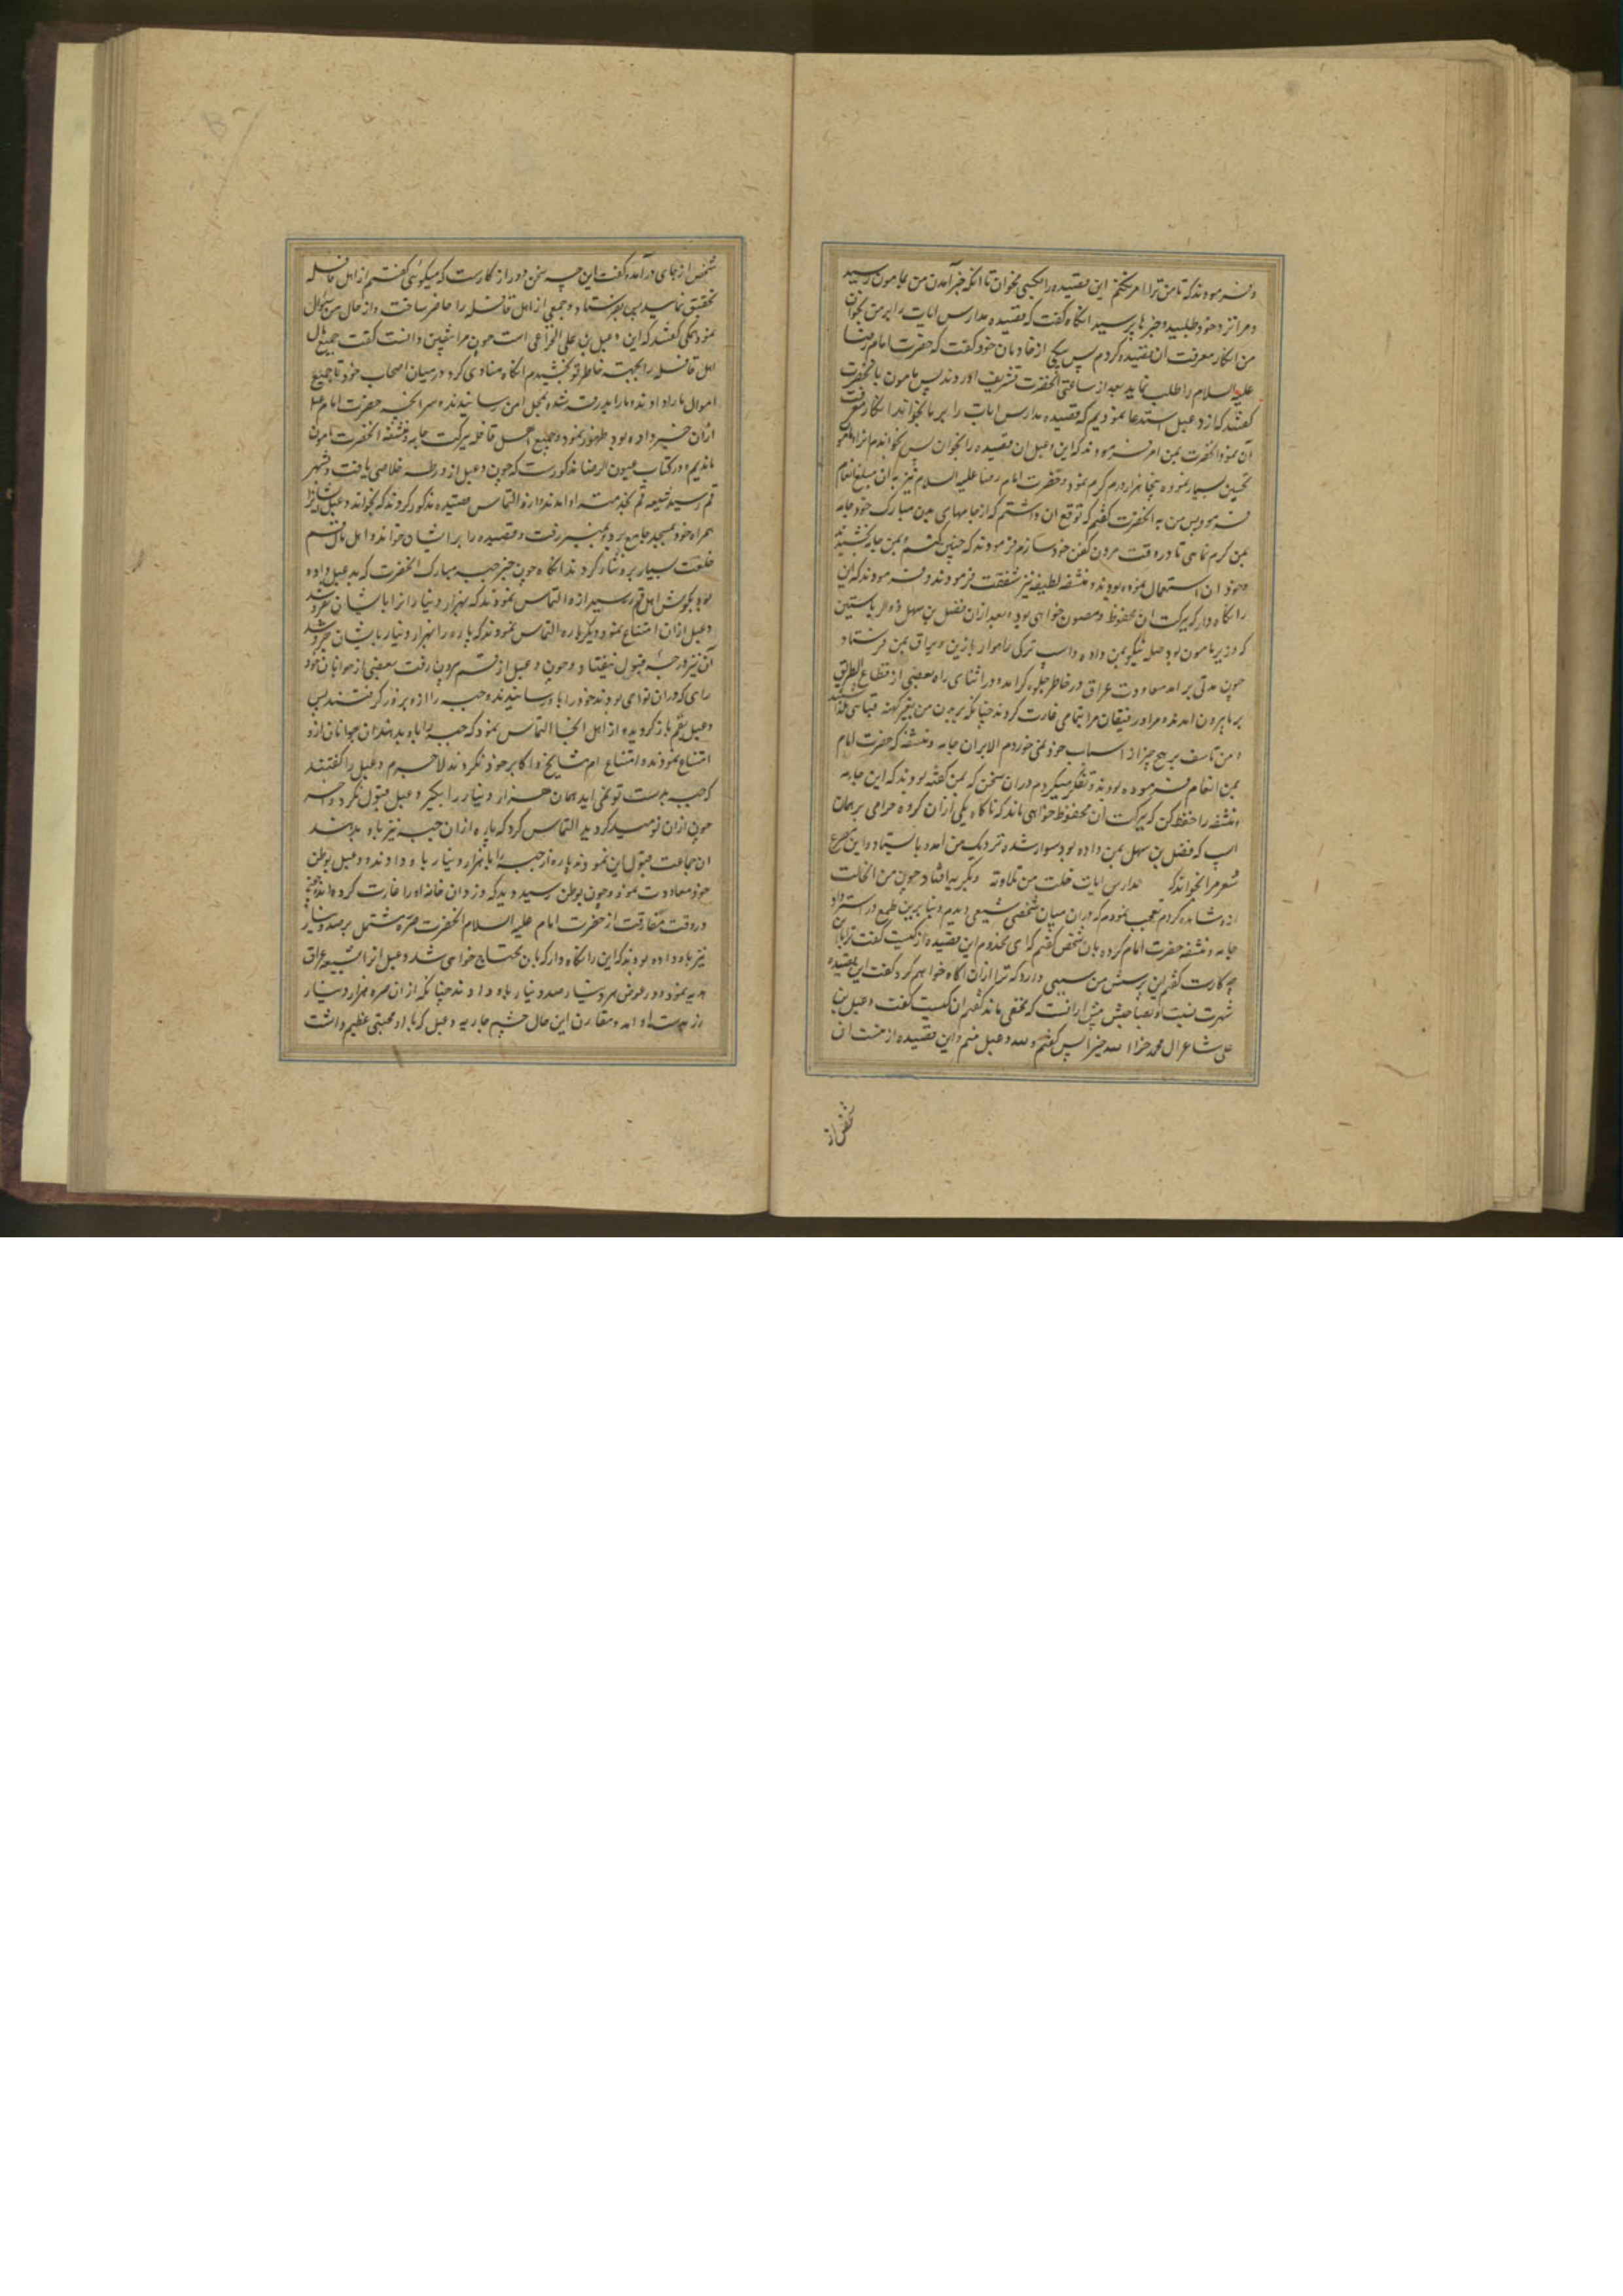 و فرمودند که تا من ترا امر نکنم این قصیده را بکسی مخوان تا انکه خبر آمدن من بمامون رسید
و مرا نزد خود طلبید و خبرها پرسید انکاه گفت که قصیده مدارس ایات را بر من بخوان
من انکار معرفت ان قصیده کردم پس یکی از خادمان خود گفت که حضرت امام رضا
علیه السلام را طلب نماید بعد از ساعتی انحضرت تشریف اوردند پس مامون بانحضرت
گفتند که از دعبل استدعا نمودیم که قصیده مدارس ایات را بر ما بخواند انکار معرفت
آن نمود انحضرت بمن امر فرمودند که ای دعبل ان قصیده را بخوان پس بخواندم انرا مامون
تحسین بسیار نموده پنجاه هزار درم کرم نمود و حضرت امام رضا علیه السلام نیز به ان مبلغ انعام
فرمود پس من به انحضرت گفتم که توقع ان داشتم که از جامهای بدن مبارک خود جامه
بمن کرم نمائی تا در وقت مردن کفن خود سازم فرمودند که چنین کنم و بمن جامه بخشید
و خود ان استعمال نموده بودند و منشفه لطیفه نیز شفقت فرمودند و فرمودند که این
را نکاه دار که ببرکت ان محفوظ و مصون خواهی بود و بعد از ان فضل بن سهل ذو الریاستین
که وزیر مامون بود صله نیکو بمن داده و اسب ترکی راهوار با زین و یراق بمن فرستاد
چون مدتی بر امد معاودت عراق در خاطر جلوه کر امد و در اثنای راه بعضی از قطاع الطریق
بر ما بیرون امدند و مرا و رفیقان مرا بتمامی غارت کردند چنانکه بر بدن من بغیر کهنه قبائی نماند
و من تاسف بر هیچ چیز از اسباب خود نمی خوردم الا بران جامه و منشفه که حضرت امام
بمن انعام فرموده بودند و تفکر میکردم دران سخن که بمن گفته بودند که این جامه
و منشفه را حفظ کن که ببرکت آن محفوظ خواهی ماند که ناکاه یکی از ان کروه حرامی بر همان
اسب که فضل بن سهل بمن داده بود سوار شده نزدیک من امد و باستاد و این مصرع
شعر مرا بخواند که مدارس ایات خلت من تلاوته و بکریه افتاد چون من انحالت
ازو مشاهده کردم تعجب نمودم که دران میان شخصی شیعی دیدم و بنابرین طمع در استرداد
جامه و منشفه حضرت امام کرده بان شخص گفتم که ای مخدوم این قصیده از کیست گفت ترا با این
چه کارست گفتم این پرسش من سببی دارد که ترا ازان اکاه خواهم کرد گفت این قصیده
شهرت نسبت او بصاحبش بیش ازانست که مخفی ماند گفتم ان کیست گفت دعبل بن
علی شاعر ال محمد جزاه الله خیرا پس گفتم والله دعبل منم و این قصیده از منست ان
شخص از
شخص از جای در آمده و گفت این چه سخن دور از کارست که میکوئی گفتم از اهل قافله
تحقیق نمائید پس بفرستاد و جمعی از اهل قافله را حاضر ساخت و از حال من سؤال
نمود همکی گفتند که این دعبل بن علی الخزاعی است چون مرا بیقین دانست گفت جمیع مال
اهل قافله را بجهت خاطر تو بخشیدم انکاه منادی کرد در میان اصحاب خود تا جمیع
اموال ما را دادند و ما را بدرقه شده بمحل امن رسانیدند و سر انچه حضرت امام
ازان خبر داده بود ظهور نمود و جمیع اهل قافله ببرکت جامه و منشفه انحضرت مامون
ماندیم و در کتاب عیون الرضا مذکورست که چون دعبل ازو رطه خلاصی یافت و بشهر
قم رسید شیعه قم بخدمت او امدند و ازو التماس قصیده مذکور کردند که بخواند دعبل ایشانرا
همراه خود بمسجد جامع برد و بمنبر رفت و قصیده را بر ایشان خواند و اهل قم
خلعت بسیار برو نثار کردند انکاه چون خبر جبه مبارک انحضرت که بدعبل داده
بود بکوش اهل قم رسید ازو التماس نمودند که بهزار دینار انرا بایشان بفروشد
دعبل ازان امتناع نمود دیکرباره التماس نمودند که پاره را بهزار دینار بایشان بفروشد
آن نیز درجه قبول نیفتاد و چون دعبل از قم بیرون رفت بعضی از جوانان خود
رای که دران نواحی بودند خود را باو رسانیدند و جبه را ازو بزور کرفتند پس
دعبل بقم باز کردید و از اهل انجا التماس نمود که جبه را باو بدهند ان جوانان ازو
امتناع نمودند و امتناع ام مشایخ و اکابر خود نکردند لاجرم دعبل را گفتند
که جبه بدست تو نمی اید همان هزار دینار را بکیر دعبل قبول نکرد و اخر
چون ازان نومید کردید التماس کرد که پاره ازان جبه نیز باو بدهند
ان جماعت قبول این نمودند پاره از جبه را با هزار دینار باو دادند و دعبل بوطن
خود معاودت نمود و چون بوطن رسید دید که دزدان خانه او را غارت کرده اند
در وقت مفارقت از حضرت امام علیه السلام انحضرت صره مشتمل بر صد دینار
نیز باو داده بودند که این را نکاه دار که بان محتاج خواهی شد دعبل انرا بشیعه عراق
هدیه نمود و در عوض هر دینار صد دینار باو دادند چنانکه از ان صره هزار دینار
زر بدست او امد و مقارن این حال چشم جاریه دعبل که با او محبتی عظیم داشت